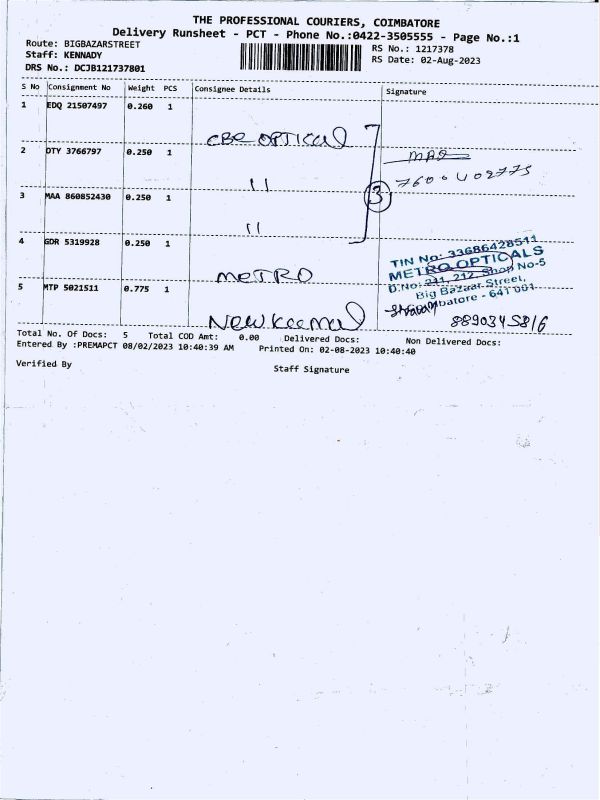 THE PROFESSIONAL COURIERS, COIMBATORE
Delivery Runsheet - PCT - Phone No.:0422-3505555 - Page No.:1
Route: BIGBAZARSTREET
RS No.: 1217378
Staff: KENNADY
RS Date: 02-Aug-2023
DRS No.: DCJB121737801
S No Consignment No Weight PCS Consignee Details Signature
1 EDQ 21507497 0.260 1
CBE OPTICAL
2 DTY 3766797 0.250 1
11
7600402775
3 MAA 860852430 0.250 1
3
11
4 GDR 5319928 0.250 1
METRO
TIN No: 33686428511
METRO OPTICALS
D.No: 211, 212, Shop No-5
Big Bazaar Street,
Coimbatore - 641 001.
5 MTP 5021511 0.775 1
8890345816
Total No. Of Docs: 5 Total COD Amt: 0.00 Delivered Docs: Non Delivered Docs:
Entered By :PREMAPCT 08/02/2023 10:40:39 AM Printed On: 02-08-2023 10:40:40
Verified By Staff Signature